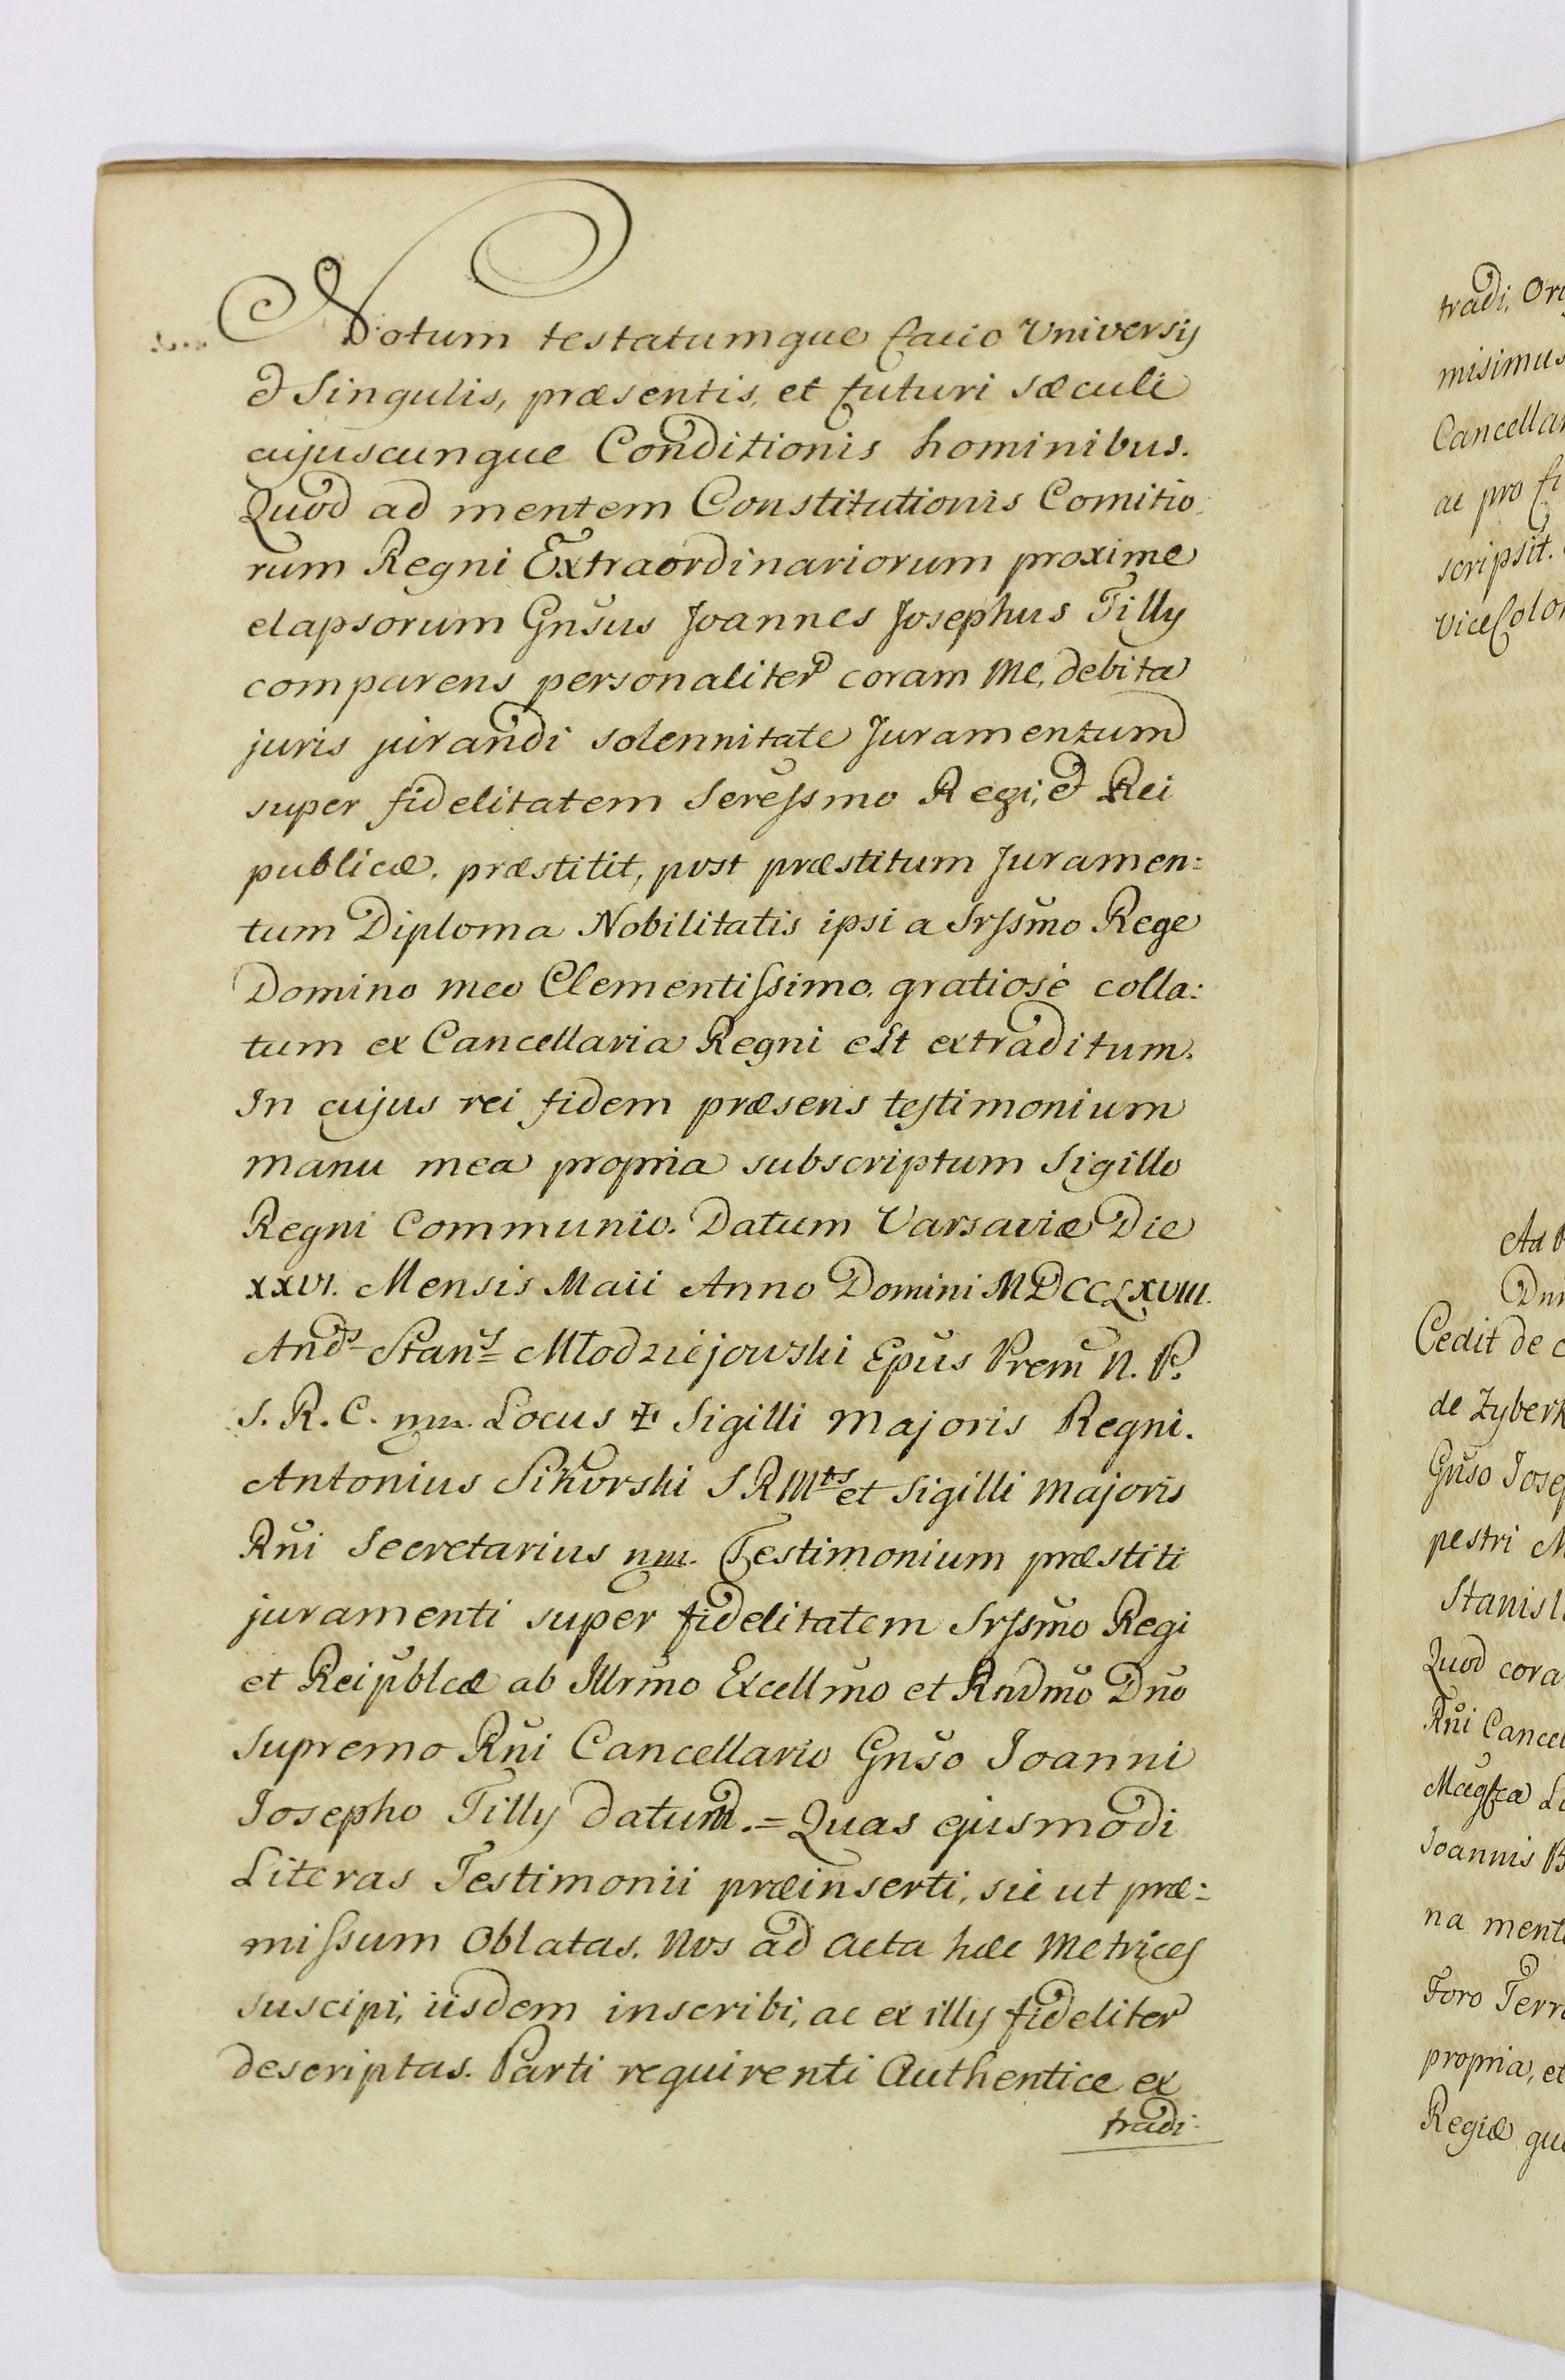 Notum testatumque facio Universis
et Singulis, præsentis, et futuri sæculi
cujuscunque Conditionis hominibus.
Quod ad mentem Constitutionis Comitio
rum Regni Extraordinariorum proxime
elapsorum Gnsus Joannes Josephus Tilly
comparens personaliter coram Me, debita
juris jurandi solennitate Juramentum
super fidelitatem Seressmo Regi, et Rei
publicæ, præstitit, post præstitum Juramen:
tum Diploma Nobilitatis ipsi a Srssmo Rege
Domino meo Clementissimo, gratiosè colla:
tum ex Cancellaria Regni est extraditum.
In cujus rei fidem præsens testimonium
manu mea propria subscriptum Sigillo
Regni Communio. Datum Varsaviæ Die
XXVI. Mensis Maii Anno Domini MDCCLXVIII.
Ands Stans Młodziejowski Epus Prem N. P.
S. R. C. mm. Locus ✠ Sigilli Majoris Regni.
Antonius Sikorski S R Mts et Sigilli Majoris
Rni Secretarius mm. Testimonium præstiti
juramenti super fidelitatem Srssmo Regi
et Reipublcæ ab Illrmo Excellmo et Rndmo Dno
Supremo Rni Cancellario Gnso Joanni
Josepho Tilly datum. = Quas ejusmodi
Literas Testimonii præinserti, sic ut præ:
missum Oblatas, Nos ad Acta hæc Metrices
suscipi, iisdem inscribi, ac ex illys fideliter
descriptas. Parti requirenti Authentice ex
tradi.
tradi, Ori
misimus
Cancellar
ac pro fi
scripsit.
Vice Colo
Ad
Dn
Cedit de c
de Zyberk
Gnso Josep
pestri M
Stanisl
Quod cora
Rni Cancel
Magfca L
Joannis B
na ment
Foro Terr
propria, et
Regiæ qu